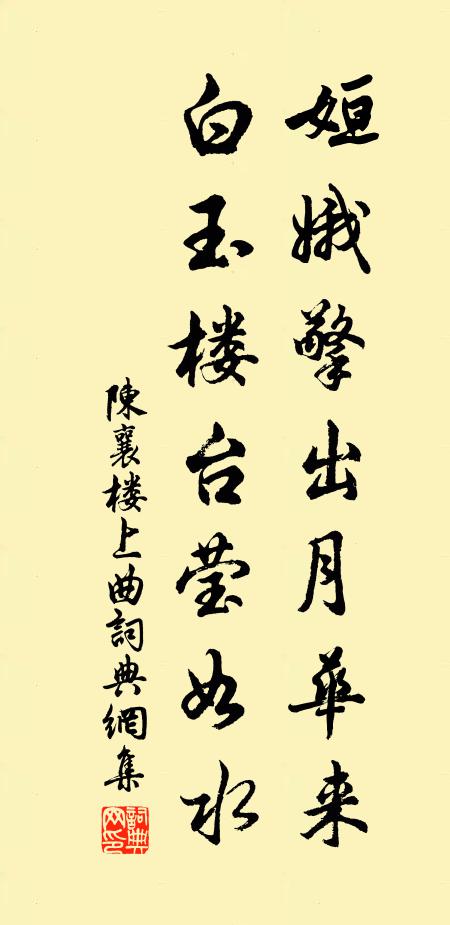 姮娥擎出月華来
白玉楼台莹如水
陳襄楼上曲詞典網集
詞典网印